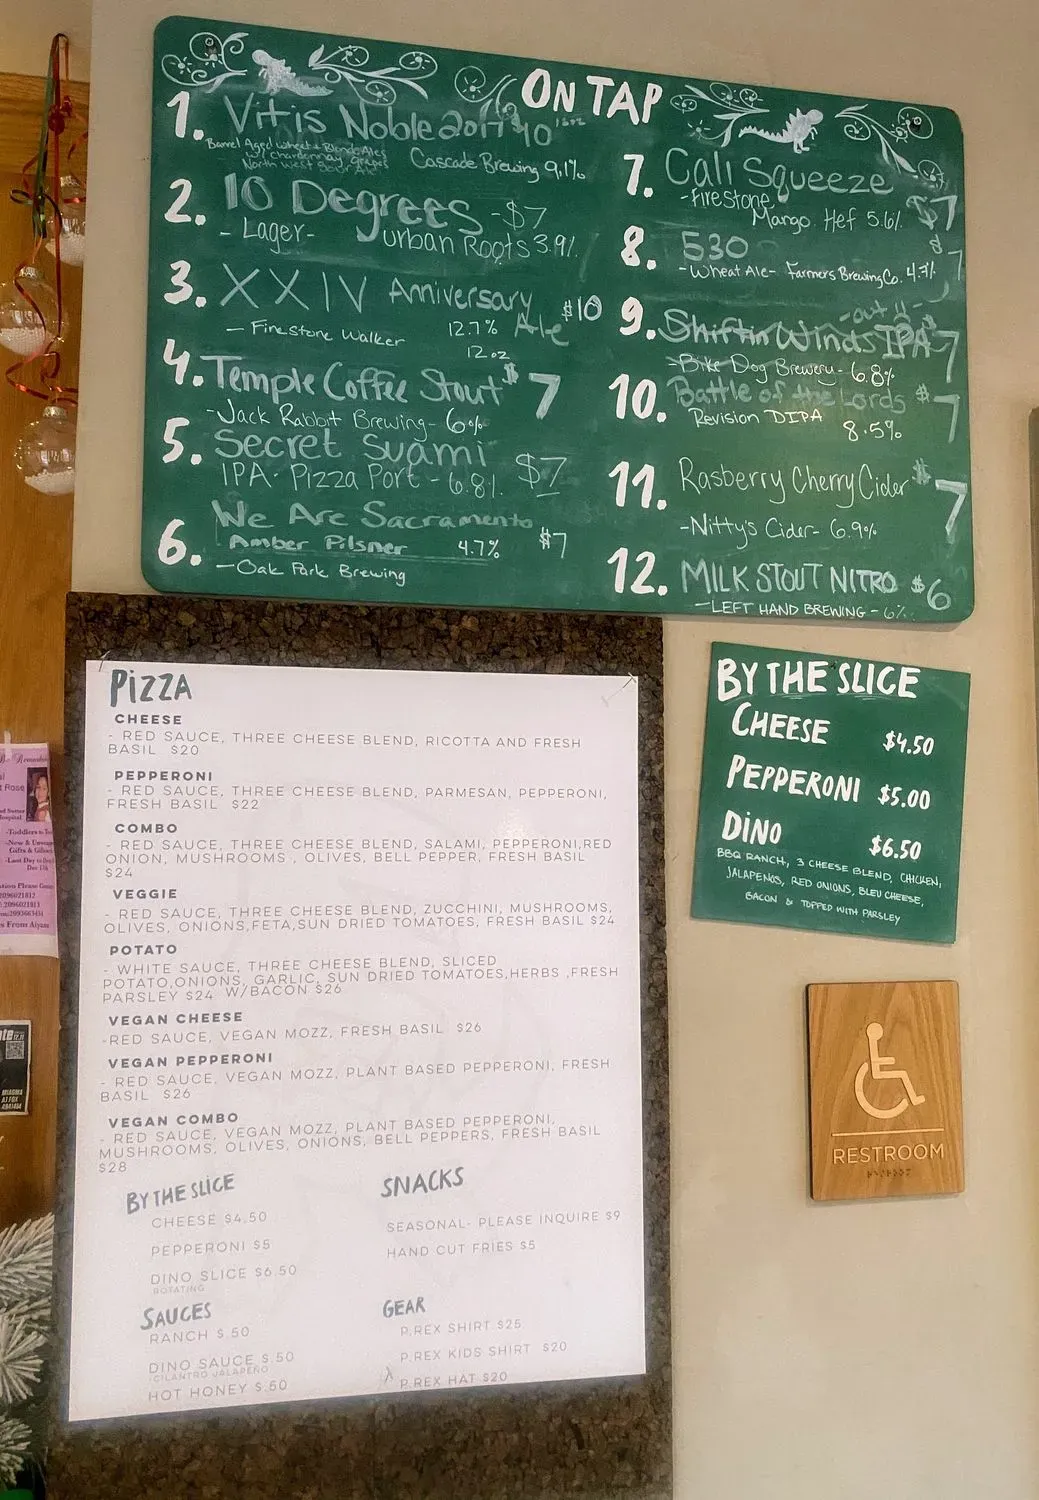 ON TAP
1. Vitis Noble 2017 $10
Barrel Aged Wheat & Blonde Ales
w/ Chardonnay grapes
North West Sour Ale
Cascade Brewing 9.1%
2. 10 Degrees - $7
- Lager- Urban Roots 3.9%
3. XXIV Anniversary Ale $10
- Firestone Walker 12.7%
12oz
4. Temple Coffee Stout $7
-Jack Rabbit Brewing- 6%
5. Secret Swami $7
IPA- Pizza Port - 6.8%
6. We Are Sacramento
Amber Pilsner 4.7% $7
-Oak Park Brewing
7. Cali Squeeze $7
-Firestone,
Mango Hef 5.6%
8. 530 $7
-Wheat Ale- Farmers Brewing Co. 4.7%
-out
9. Shiftin Winds IPA $7
-Bike Dog Brewery- 6.8%
10. Battle of the Lords $7
Revision DIPA
8.5%
11. Rasberry Cherry Cider $7
-Nitty's Cider- 6.9%
12. MILK STOUT NITRO $6
-LEFT HAND BREWING - 6%
PIZZA
CHEESE
- RED SAUCE, THREE CHEESE BLEND, RICOTTA AND FRESH
BASIL $20
PEPPERONI
- RED SAUCE, THREE CHEESE BLEND, PARMESAN, PEPPERONI,
FRESH BASIL $22
COMBO
- RED SAUCE, THREE CHEESE BLEND, SALAMI, PEPPERONI,RED
ONION, MUSHROOMS , OLIVES, BELL PEPPER, FRESH BASIL
$24
VEGGIE
- RED SAUCE, THREE CHEESE BLEND, ZUCCHINI, MUSHROOMS,
OLIVES, ONIONS,FETA,SUN DRIED TOMATOES, FRESH BASIL $24
POTATO
- WHITE SAUCE, THREE CHEESE BLEND, SLICED
POTATO,ONIONS, GARLIC, SUN DRIED TOMATOES,HERBS ,FRESH
PARSLEY $24 W/BACON $26
VEGAN CHEESE
-RED SAUCE, VEGAN MOZZ, FRESH BASIL $26
VEGAN PEPPERONI
- RED SAUCE, VEGAN MOZZ, PLANT BASED PEPPERONI, FRESH
BASIL $26
VEGAN COMBO
- RED SAUCE, VEGAN MOZZ, PLANT BASED PEPPERONI,
MUSHROOMS, OLIVES, ONIONS, BELL PEPPERS, FRESH BASIL
$28
BY THE SLICE
CHEESE $4.50
PEPPERONI $5
DINO SLICE $6.50
ROTATING
SAUCES
RANCH $.50
DINO SAUCE $.50
CILANTRO JALAPEÑO
HOT HONEY $.50
SNACKS
SEASONAL- PLEASE INQUIRE $9
HAND CUT FRIES $5
GEAR
P.REX SHIRT $25
P.REX KIDS SHIRT $20
P.REX HAT $20
BY THE SLICE
CHEESE $4.50
PEPPERONI $5.00
DINO $6.50
BBQ RANCH, 3 CHEESE BLEND, CHICKEN,
JALAPENOS, RED ONIONS, BLEU CHEESE,
BACON & TOPPED WITH PARSLEY
RESTROOM